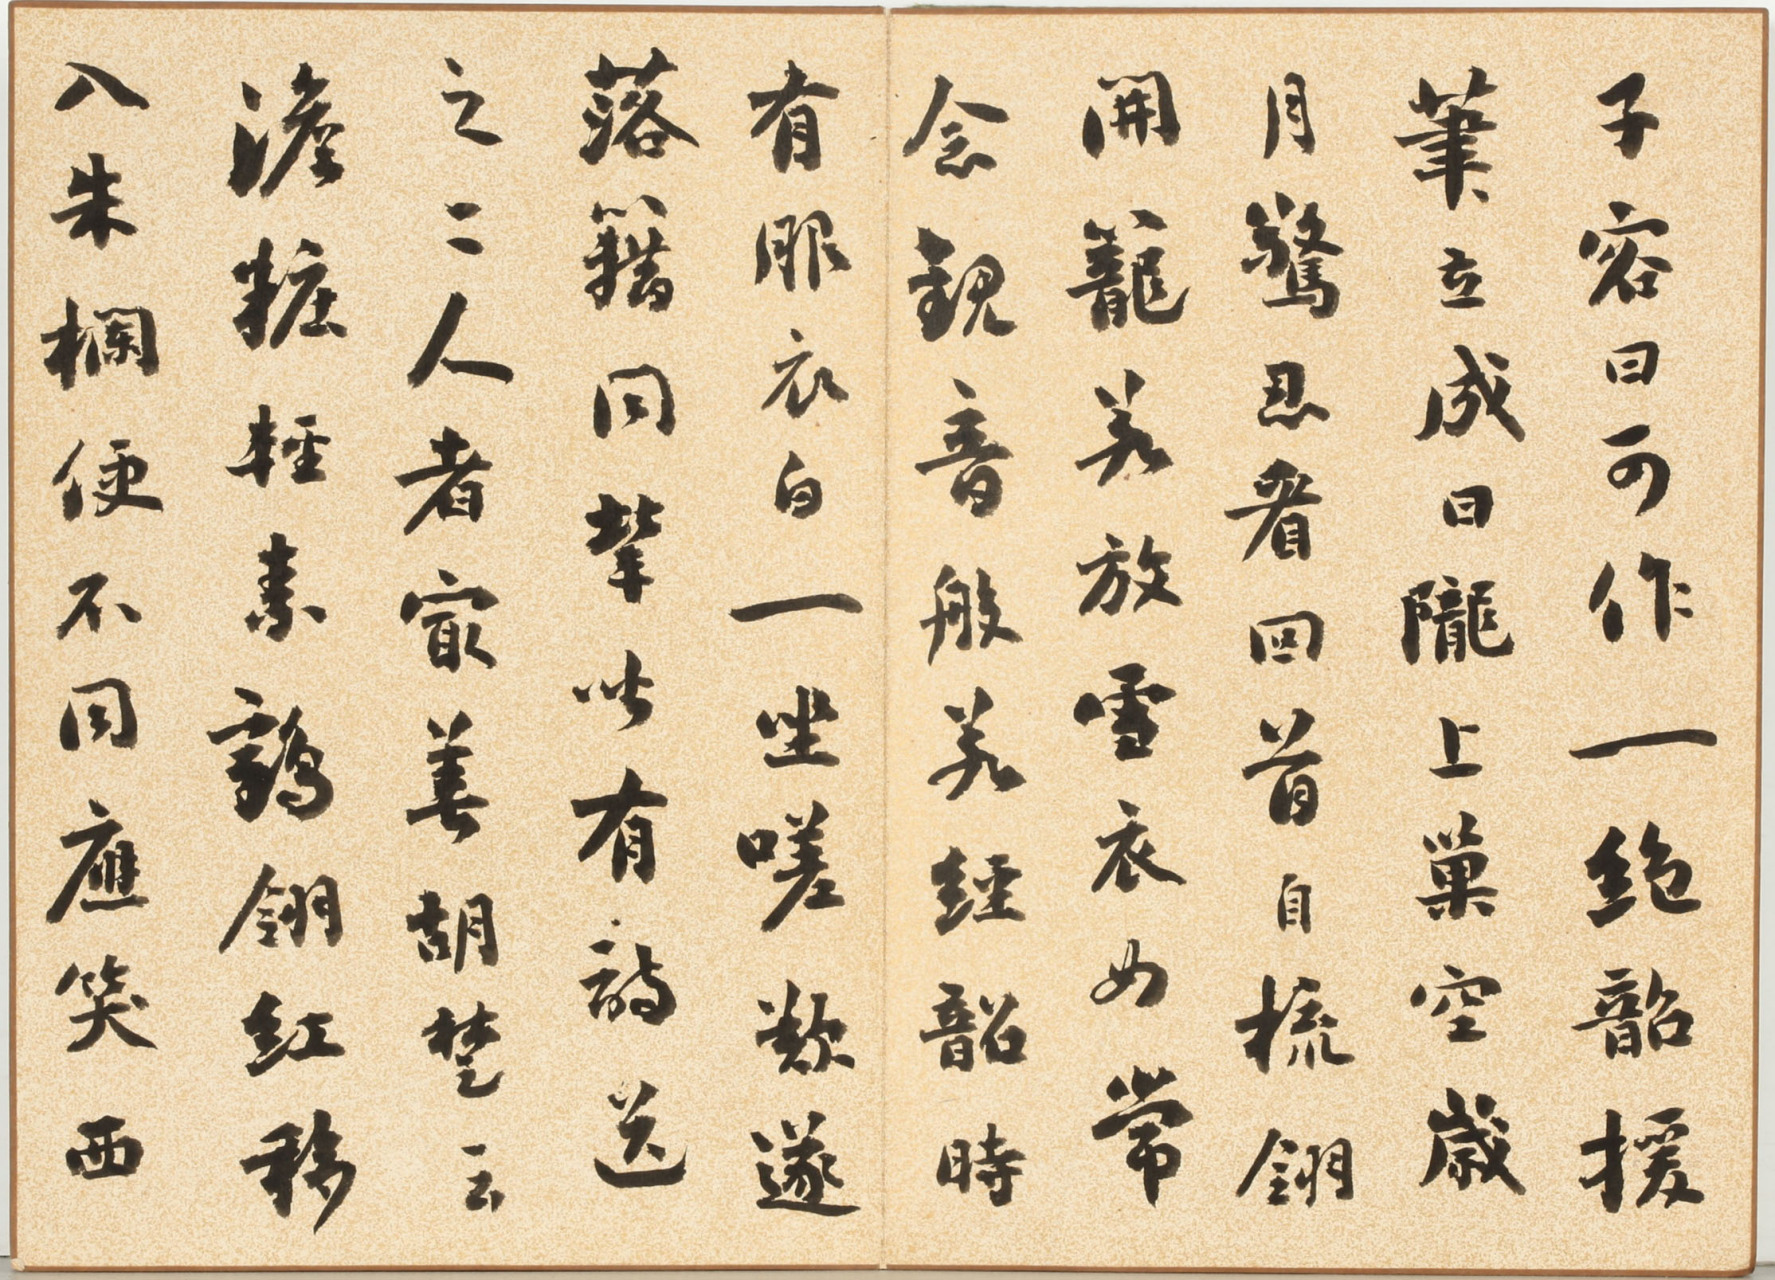 子容曰可作一絶韶援
筆立成曰隴上巢空歲
月驚忍看回首自梳翎
開籠若放雪衣女常
念觀音般若經韶時
有服衣白一坐嗟歎遂
落籍同輩皆有詩送
之二人者㝡善胡楚云
澹粧輕素鶴翎紅移
入朱欄便不同應笑西